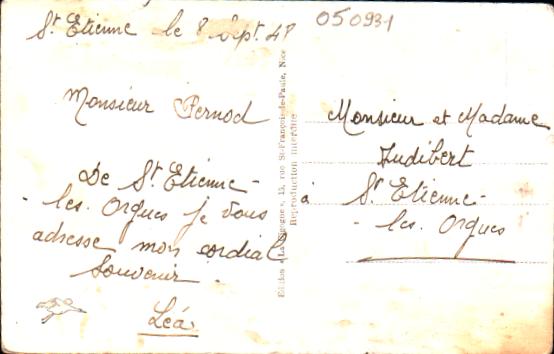 St Etienne le 8 Sept. 48
050931
Monsieur Pernod
De St Etienne-
-les. Orgues je vous
adresse mon cordial
souvenir.
Léa
Edition « La Cigogne », 15, rue St-François-de-Paule, Nice
Reproduction interdite
Monsieur et Madame
Judibert
à St Etienne-
-les. Orgues